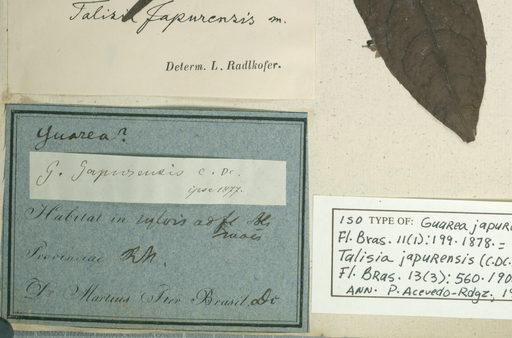 Talisia Japurensis m.
Determ. L. Radlkofer.
Guarea?
G. Japurensis C. DC.
ipse 1877.
Habitat in sylvis ad fl.
Provinciae R. N.
Dr Martius Iter Brasil.
ISO TYPE OF: Guarea japur
Fl. Bras. 11(1): 199. 1878. =
Talisia japurensis (C.DC.
Fl. Bras. 13(3): 560. 190
ANN. P. Acevedo-Rdgz, 19